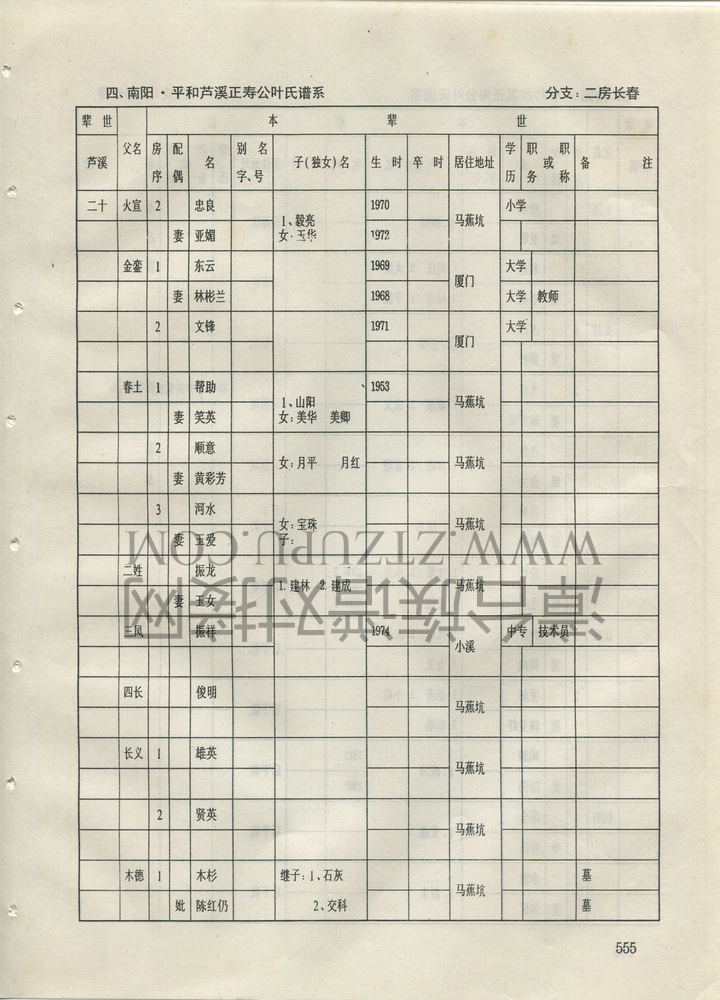 四、南阳·平和芦溪正寿公叶氏谱系 分支：二房长春
辈世 本 辈 世
芦溪 父名 房序 配偶 名 别名字、号 子(独女)名 生时 卒时 居住地址 学历 职或职务称 备 注
二十 火宣 2 忠良 1、毅亮 1970 马蕉坑 小学
妻 亚媚 女：玉华 1972
金銮 1 东云 1969 厦门 大学
妻 林彬兰 1968 大学 教师
2 文锋 1971 厦门 大学
春土 1 帮助 1、山阳 1953 马蕉坑
妻 笑英 女：美华 美卿
2 顺意 女：月平 月红 马蕉坑
妻 黄彩芳
3 河水 女：宝珠 马蕉坑
妻 玉爱 子：
二姓 振龙 1.建林 2.建成 马蕉坑
妻 玉女
三凤 振祥 1974 小溪 中专 技术员
四长 俊明 马蕉坑
长义 1 雄英 马蕉坑
2 贤英 马蕉坑
木德 1 木杉 继子：1、石灰 马蕉坑 墓
妣 陈红仍 2、交科 墓
555
WWW.ZTZUPU.COM
漳台族谱对接网